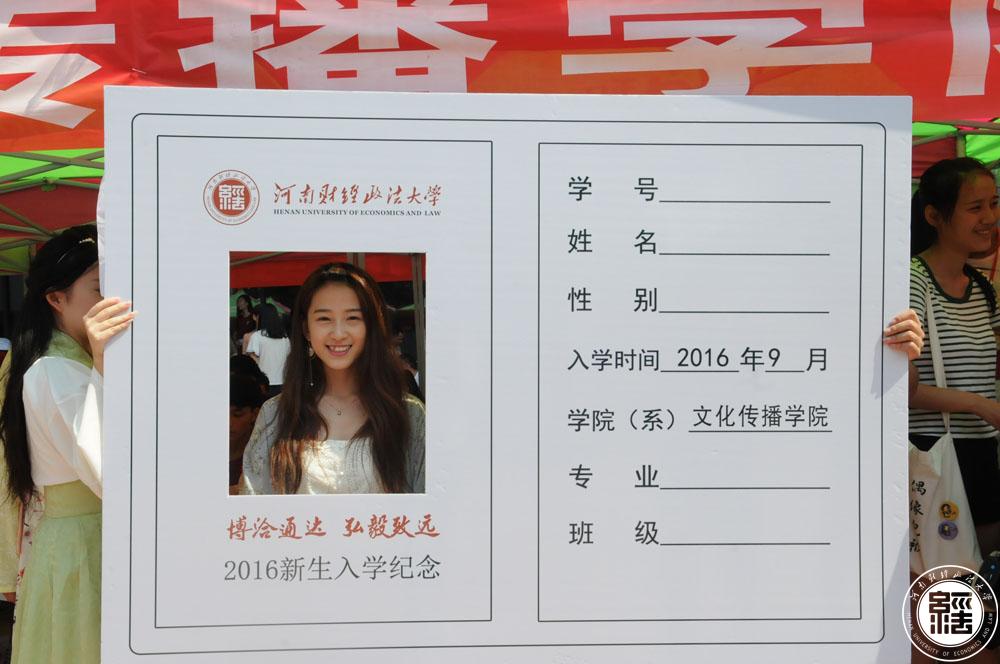 传播学院
河南财经政法大学
HENAN UNIVERSITY OF ECONOMICS AND LAW
博洽通达 弘毅致远
2016新生入学纪念
学 号
姓 名
性 别
入学时间 2016 年 9 月
学院（系） 文化传播学院
专 业
班 级
河南财经政法大学
HENAN UNIVERSITY OF ECONOMICS AND LAW